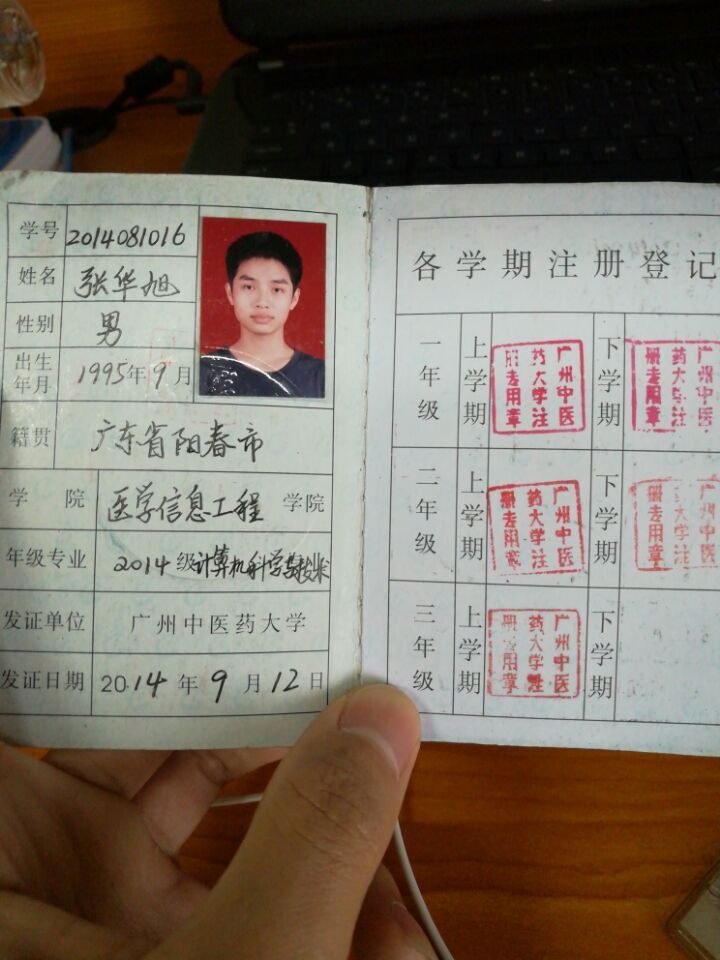 学号 2014081016
姓名 张华旭
性别 男
出生年月 1995年9月
籍贯 广东省阳春市
学院 医学信息工程 学院
年级专业 2014级计算机科学与技术
发证单位 广州中医药大学
发证日期 2014年9月12日
各学期注册登记
一年级 上学期 广州中医药大学注册专用章 下学期 广州中医药大学注册专用章
二年级 上学期 广州中医药大学注册专用章 下学期 广州中医药大学注册专用章
三年级 上学期 广州中医药大学注册专用章 下学期